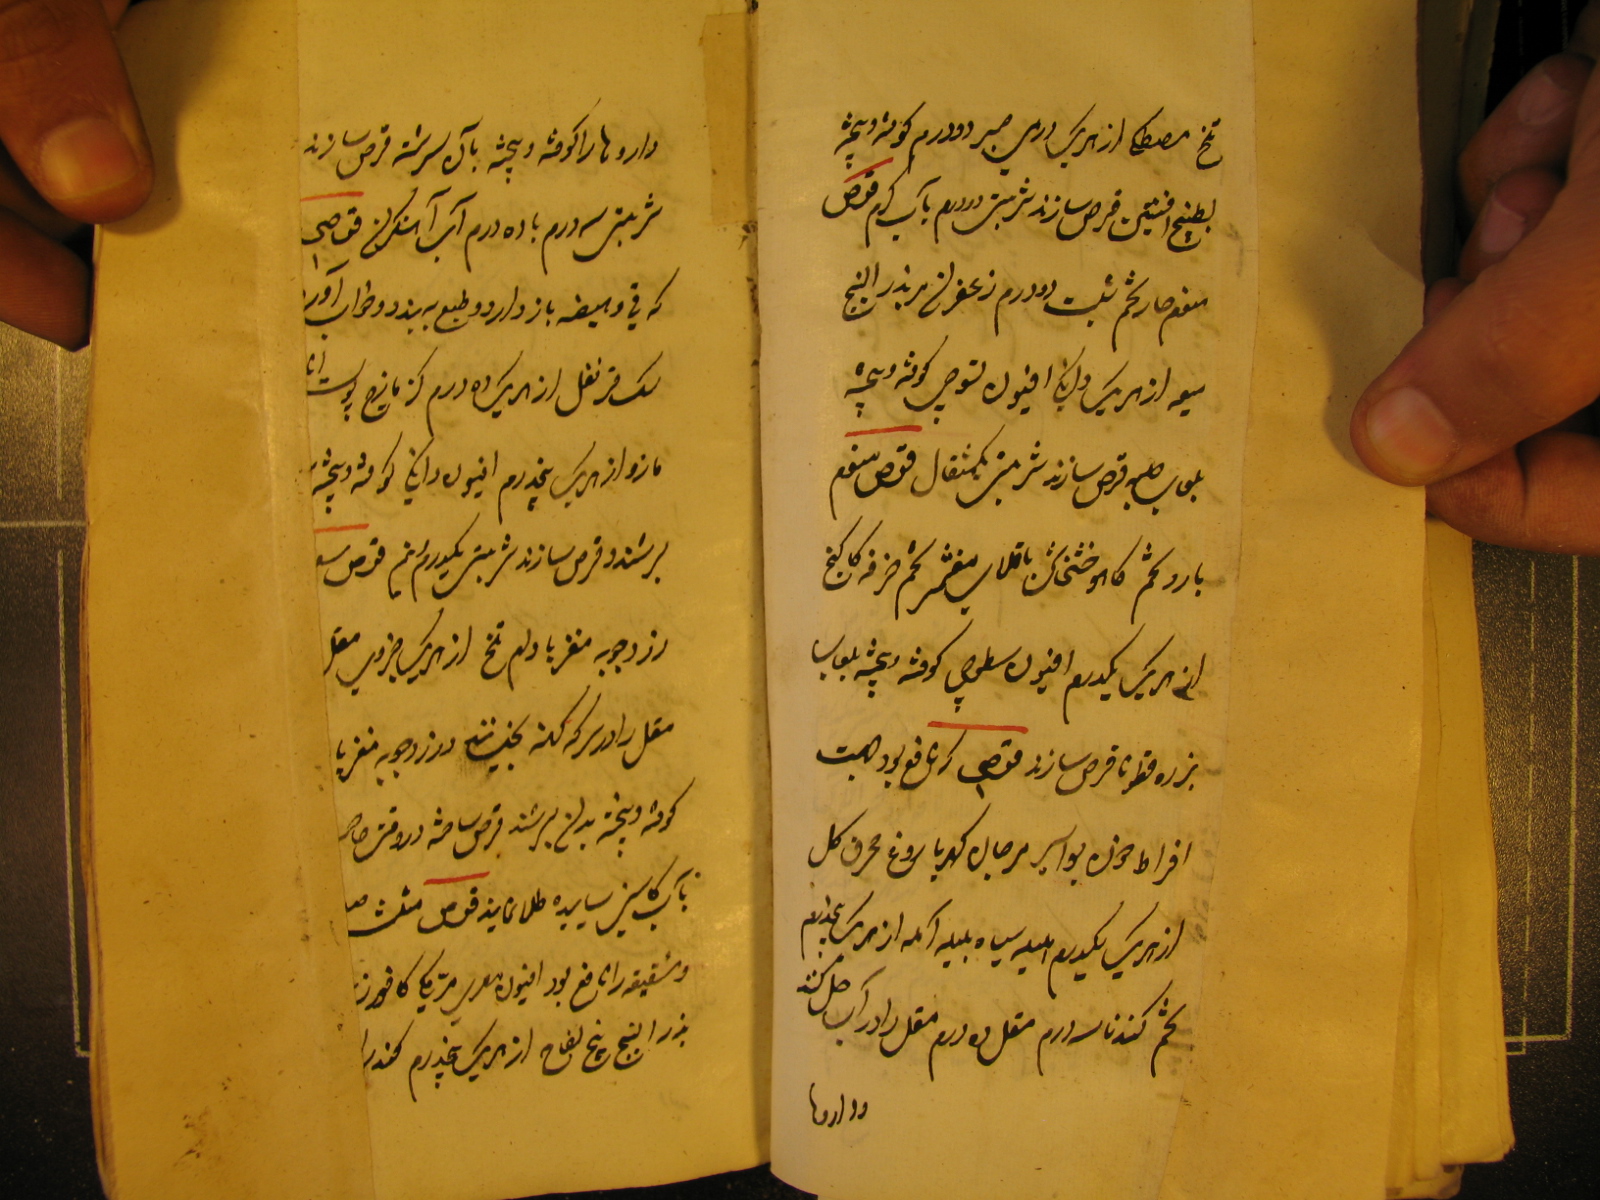 تلخ مصطکی از هریک درمی صبر دودرم کوفته و بیخته
بطبیخ افسنتین قرص سازند شربتی دودرم بآب کرم قرص
منوم حار تخم شبت دودرم زعفران بذر البنج
میعه از هریک دانکی افیون تسوجی کوفته و بیخته
بلعاب حلبه قرص سازند شربتی یکمثقال قرص منوم
بارد تخم کاهو خشخاش باقلای مقشر تخم خرفه کاکنج
از هریک یکدرم افیون طسوجی کوفته و بیخته بلعاب
بزرقطونا قرص سازند قرصی که نافع بود جهت
افراط خون بواسیر مرجان کهربا محرق کل
از هریک یکدرم هلیله سیاه بلیله آمله از هریک پنجدرم
تخم کندنا سه درم مقل ده درم مقل را در آب حل کنند
و داروها
داروها را کوفته و بیخته بآن سرشته قرص سازند
شربتی سه درم با ده درم آب آهنکران قرصی
که قی و هیضه باز دارد و طبع به بندد و خواب آورد
سک قرنفل از هریک ده درم کزمازج پوست
مازو از هریک پنجدرم افیون دانکی کوفته و بیخته
برشند و قرص سازند شربتی یکدرم و نیم قرص
زردچوبه مغز بادام تلخ از هریک جزوی مقل
مقل را در سرکه کهنه بخیسانند و زردچوبه مغز با
کوفته و بیخته بدان برشند قرص ساخته در وقت
بآب کاسنی ساییده طلا نمایند قرص مثلث
و شقیقه را نافع بود افیون مصری مرمکی کافور
بذر البنج بیخ لفاح از هریک پنجدرم کندر